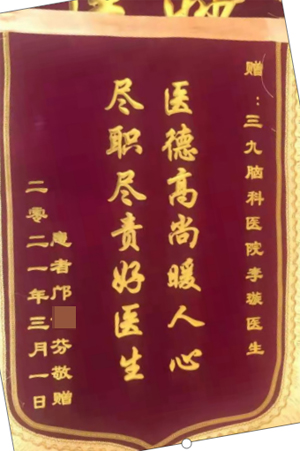 赠：三九脑科医院李璇医生
医德高尚暖人心
尽职尽责好医生
患者邝芬敬赠
二零二一年三月一日